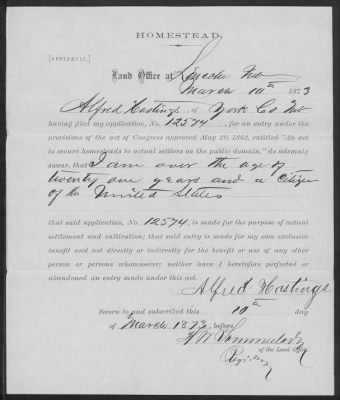 HOMESTEAD.
[AFFIDAVIT.]
Land Office at Lincoln Neb
March 10th 1873
I, Alfred Hastings, of York Co Neb
having filed my application, No. 12574, for an entry under the
provisions of the act of Congress approved May 20, 1862, entitled "An act
to secure homesteads to actual settlers on the public domain," do solemnly
swear, that I am over the age of
twenty one years and a citizen
of the United States
that said application, No. 12574, is made for the purpose of actual
settlement and cultivation; that said entry is made for my own exclusive
benefit and not directly or indirectly for the benefit or use of any other
person or persons whomsoever; neither have I heretofore perfected or
abandoned an entry made under this act.
Alfred Hastings
Sworn to and subscribed this 10th day
of March 1873, before
of the Land Office.
Register